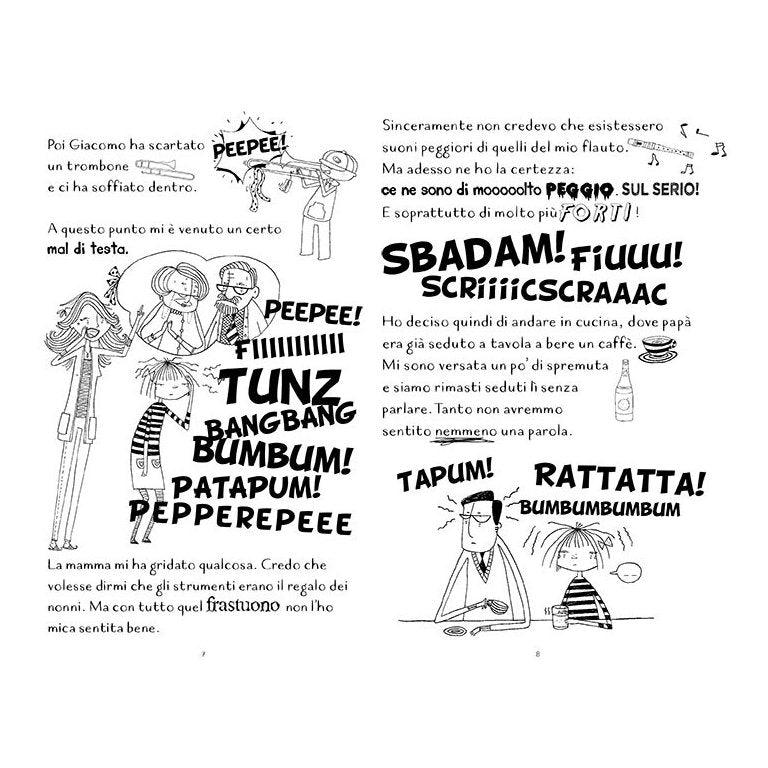 Poi Giacomo ha scartato
un trombone
e ci ha soffiato dentro.
PEEPEE!
A questo punto mi è venuto un certo
mal di testa.
PEEPEE!
FIIIIIIIIIII
TUNZ
BANGBANG
BUMBUM!
PATAPUM!
PEPPEREPEEE
La mamma mi ha gridato qualcosa. Credo che
volesse dirmi che gli strumenti erano il regalo dei
nonni. Ma con tutto quel frastuono non l'ho
mica sentita bene.
7
Sinceramente non credevo che esistessero
suoni peggiori di quelli del mio flauto.
Ma adesso ne ho la certezza:
ce ne sono di mooooolto PEGGIO. SUL SERIO!
E soprattutto di molto più FORTI!
SBADAM! FiUUU!
SCRiiiiCSCRAAAC
Ho deciso quindi di andare in cucina, dove papà
era già seduto a tavola a bere un caffè.
Mi sono versata un po' di spremuta
e siamo rimasti seduti lì senza
parlare. Tanto non avremmo
sentito nemmeno una parola.
TAPUM!
RATTATTA!
BUMBUMBUMBUM
8